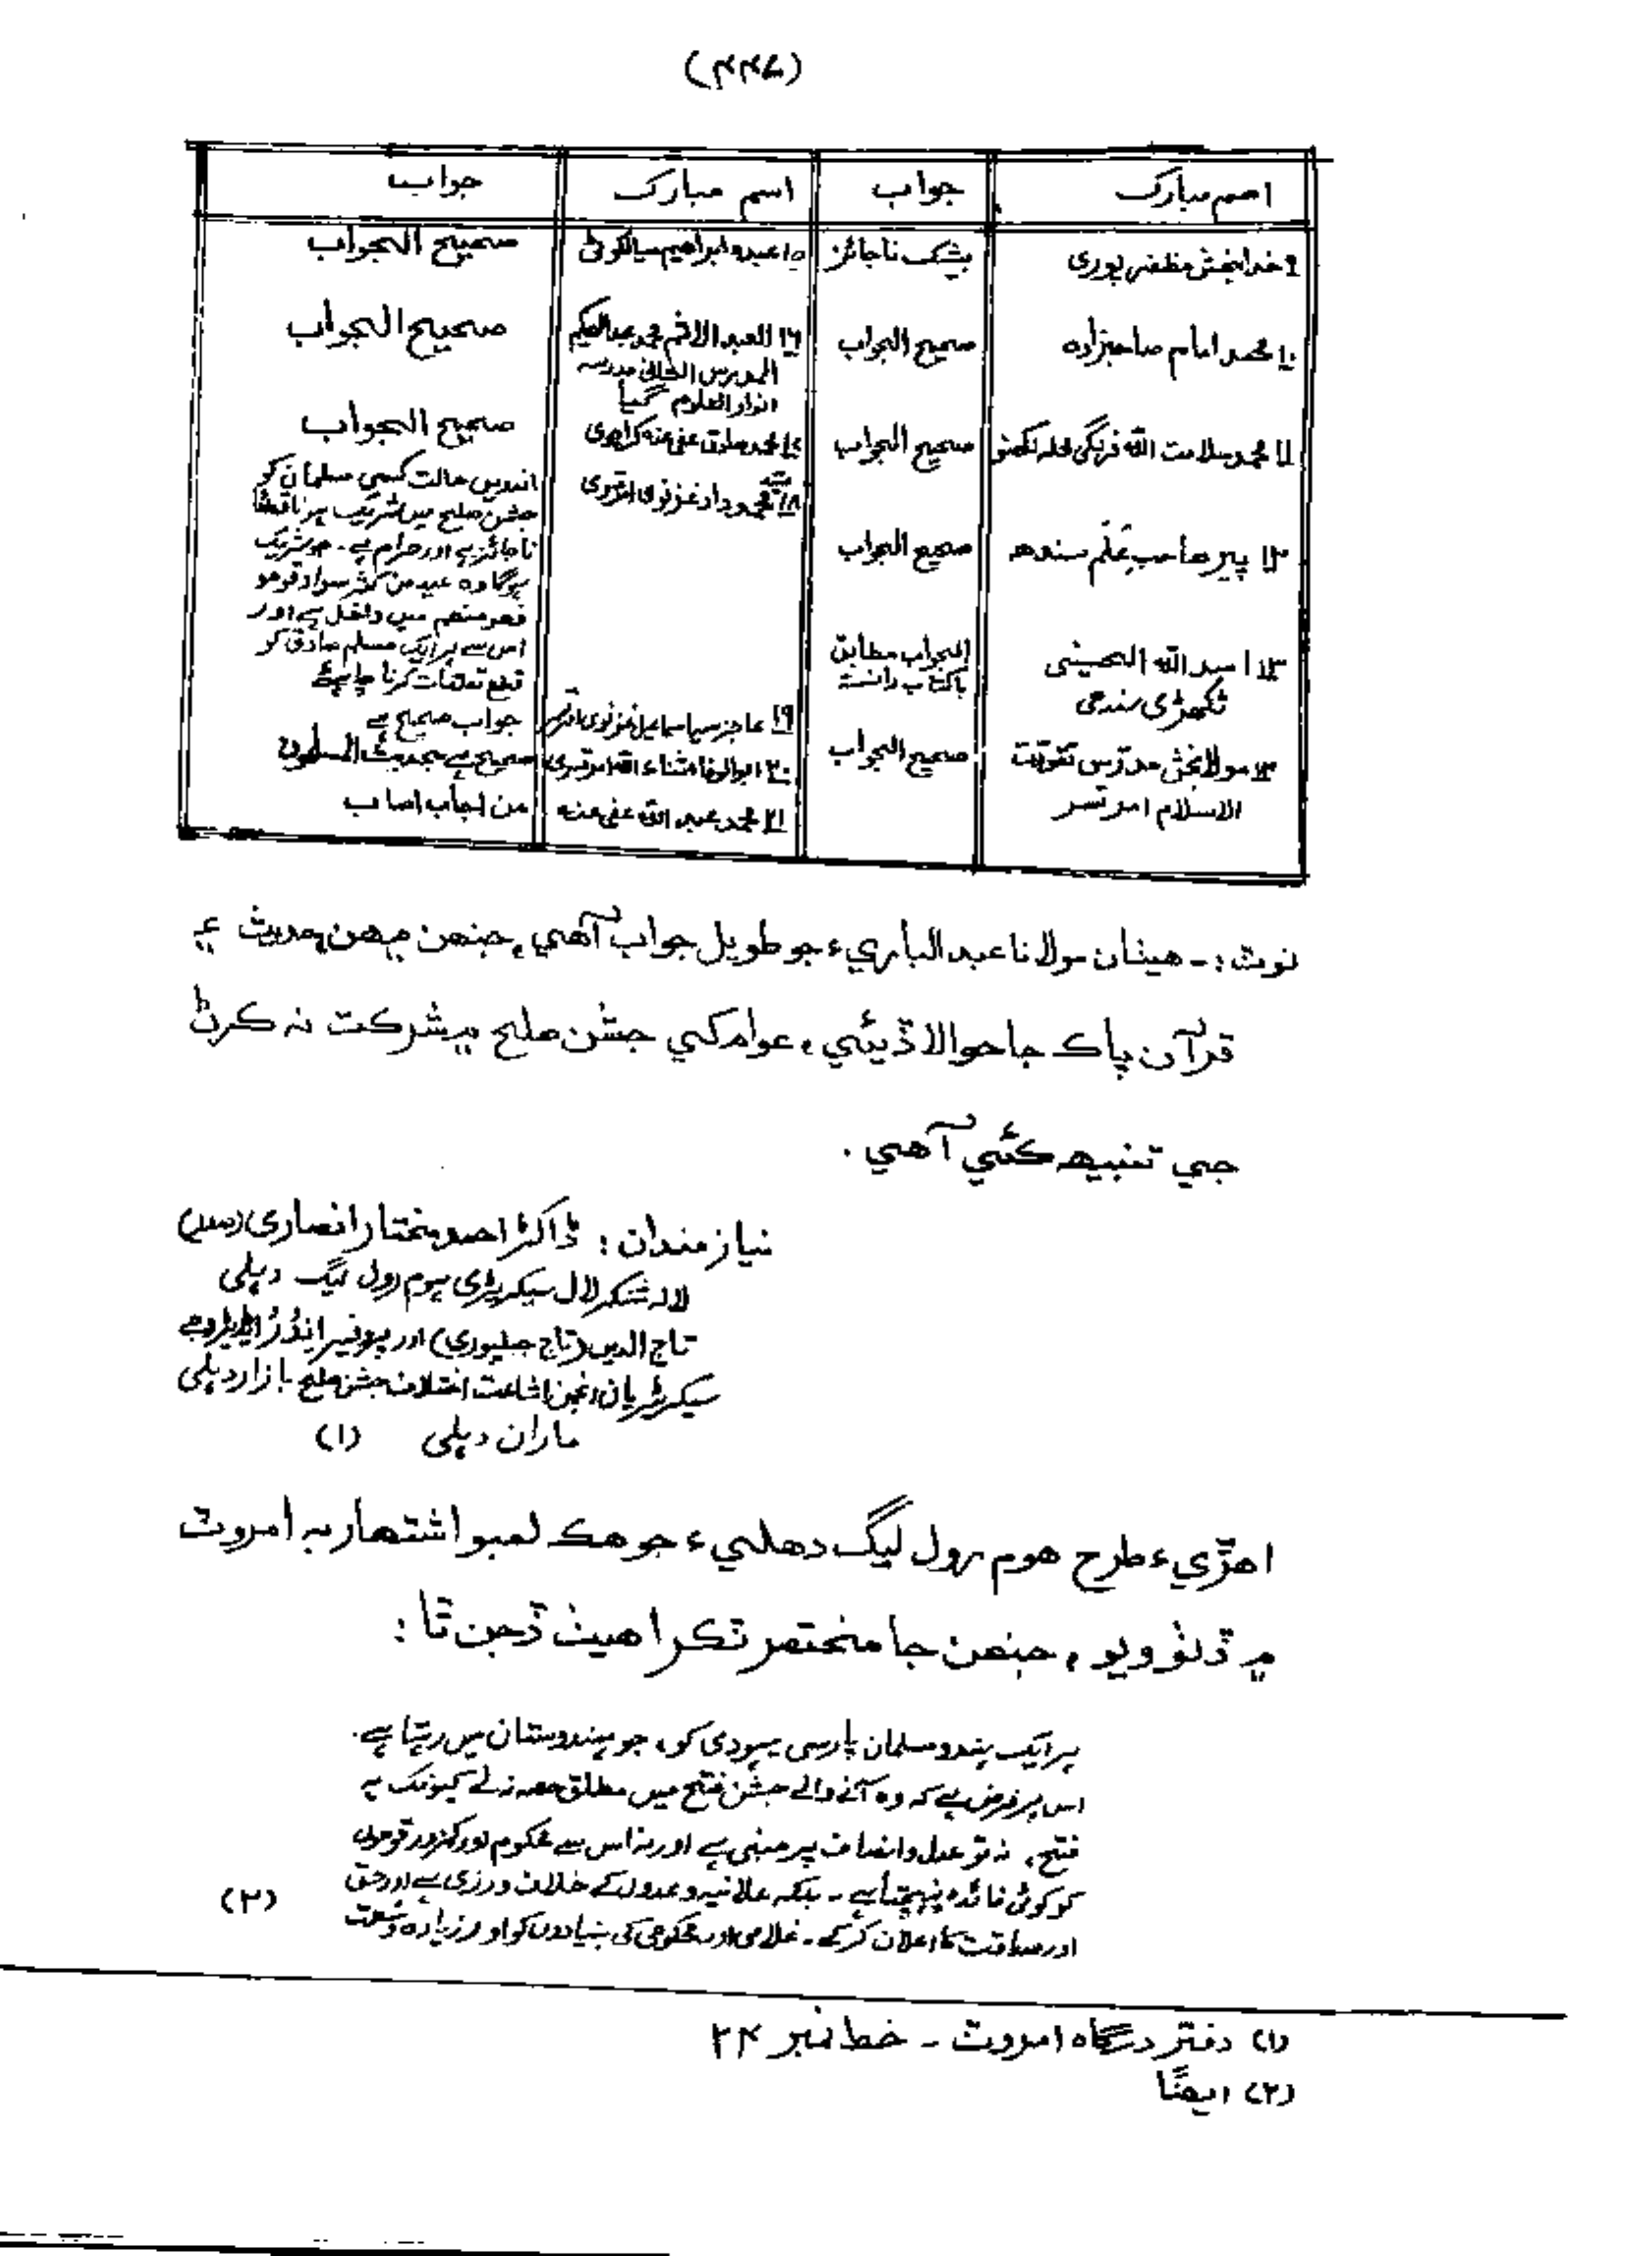 (۴۴۷)
اسم مبارک	جواب	اسم مبارک	جواب
۹ خدابخش مظفرپوری	بیشک ناجائز	۱۵ عبدہ ابراھیم سیالکوٹی	صحیح الجواب
۱۰ محمد امام صاحبزادہ	صحیح الجواب	۱۶ العبد الاثم محمد عبدالحکیم	صحیح الجواب
المدرس الثانی مدرسہ
انوار العلوم گیا
۱۱ محمد سلامت اللہ فرنگی محلہ لکھنؤ	صحیح الجواب	۱۷ محمد صادق عفی عنہ کراچوی	صحیح الجواب
۱۲ پیر صاحب عَلَم سندھ	صحیح الجواب	۱۸ داؤد غزنوی امرتسری	اندریں حالت کسی مسلمان کو
جشن صلح میں شریک ہونا قطعًا
ناجائز ہے اور حرام ہے۔ جو شریک
ہوگا وہ عید من کثر سواد قوم
فھو منھم میں داخل ہے اور
اس سے ہر ایک مسلم صادق کو
قطع تعلقات کرنا چاہیئے
۱۳ اسد اللہ الحسینی	الجواب مطابق
ٹکھڑی سندھی	باکتاب والسنۃ
۱۴ مولابخش مدرس تقویت	صحیح الجواب	۱۹ عاجز سید اسماعیل غزنوی امرتسر	جواب صحیح ہے
الاسلام امرتسر		۲۰ ابوالوفا ثناء اللہ امرتسری	صحیح ہے بحدیث المسلمون
۲۱ محمد عبد اللہ عفی عنہ	من اجاب اصاب
نوٽ :۔ هينئان مولانا عبدالباريءَ جو طويل جواب آهي، جنهن ۾ هن حديث ۽
قرآن پاڪ جا حوالا ڏيئي، عوام کي جشن صلح ۾ شرڪت نہ ڪرڻ
جي تنبيھ ڪئي آهي.
نیازمندان : ڈاکٹر احمد مختار انصاری (صدر)
لالہ شنکر لال سیکریٹری ہوم رول لیگ دہلی
تاج الدین (تاج جبلپوری) اور پروفیسر
سیکریٹریان انجمن اشاعت اختلاف جشن صلح بازار دہلی
ماران دہلی (۱)
اهڙيءَ طرح هوم رول ليگ دهليءَ جو هڪ لمبو اشتهار بہ امروٽ
۾ ڏٺو ويو، جنهن جا مختصر ٽڪرا هيٺ ڏجن ٿا :
ہر ایک ہندو مسلمان پارسی یہودی کو، جو ہندوستان میں رہتا ہے.
اس پر فرض ہے کہ وہ آنے والے جشن فتح میں مطلق حصہ نہ لے کیونکہ یہ
فتح، نہ تو عدل و انصاف پر مبنی ہے اور نہ اس سے محکوم اور کمزور قوموں
کو کوئی فائدہ پہنچتا ہے۔ بلکہ علانیہ وعدوں کے خلاف ورزی ہے اور حق
اور صداقت کا اعلان کرکے۔ غلامی اور محکومی کی بنیادوں کو اور زیادہ وسعت (۲)
(۱) دفتر درگاه امروٽ ۔ خط نمبر ۲۴
(۲) ايضًا